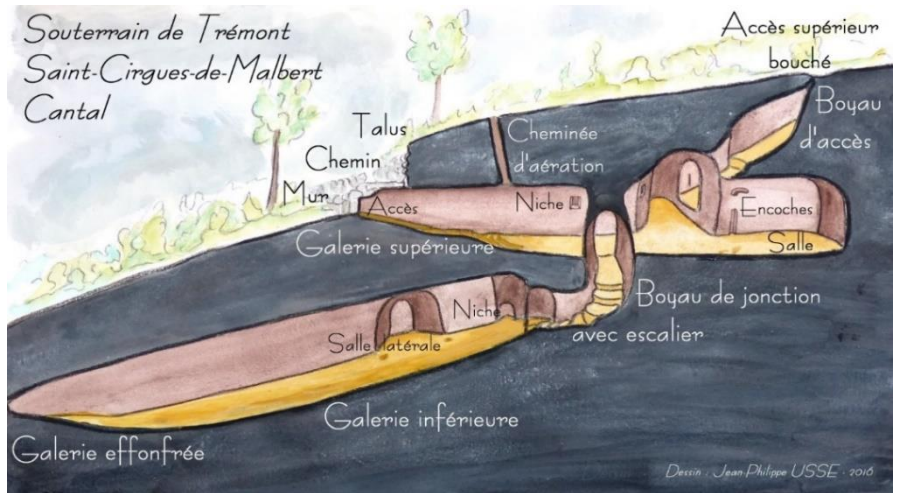 Souterrain de Trémont
Saint-Cirgues-de-Malbert
Cantal
Accès supérieur
bouché
Boyau
d'accès
Talus
Chemin
Mur
Cheminée
d'aération
Accès
Niche
Encoches
Salle
Galerie supérieure
Boyau de jonction
avec escalier
Niche
Salle latérale
Galerie inférieure
Galerie effonfrée
Dessin : Jean-Philippe USSE - 2016